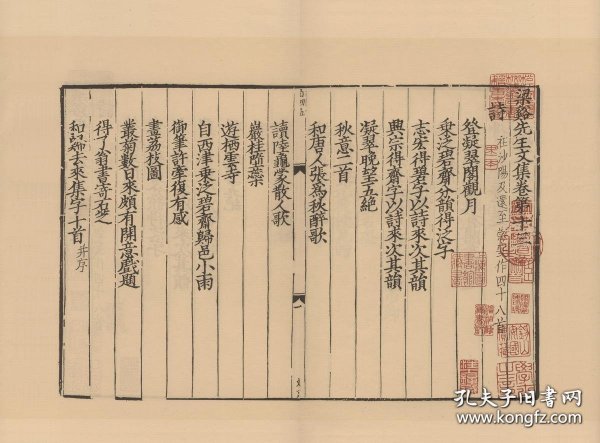 梁谿先生文集卷第十三
詩 在沙陽及還至劒作四十八首
登凝翠閣觀月
乗泛碧齋分韻得泛字
志宏得碧字以詩來次其韻
興宗得齋字以詩來次其韻
凝翠晚望五絶
秋意二首
和唐人張為秋醉歌
讀陸龜蒙散人歌
巖桂隨葉
遊栖雲寺
自西津乗泛碧齋歸邑小雨
御筆許牽復有感
畫荔枝圖
叢菊數日來頗有開意戲題
得了翁書寄
和歸去來集字十首 并序
孔夫子旧书网
www.kongfz.com